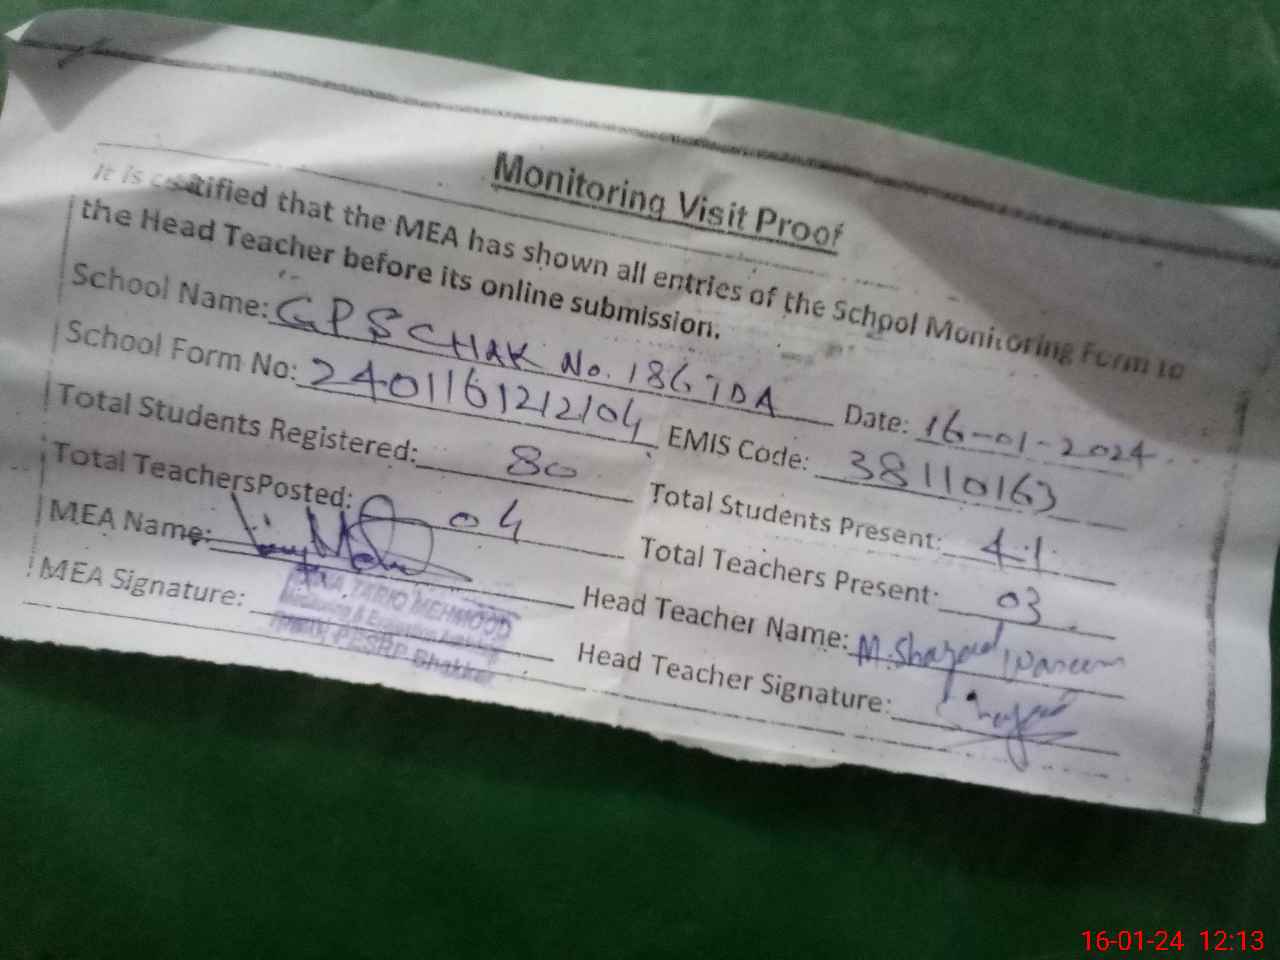 Monitoring Visit Proof
It is certified that the MEA has shown all entries of the School Monitoring Form to
the Head Teacher before its online submission.
School Name: GPS CHAK No. 186 TDA Date: 16-01-2024
School Form No: 2401161212104 EMIS Code: 38110163
Total Students Registered: 80 Total Students Present: 41
Total TeachersPosted: 04 Total Teachers Present: 03
MEA Name: Head Teacher Name: M. Shazad Waseem
MEA Signature: Head Teacher Signature:
TARIQ MEHMOOD
Monitoring & Evaluation
PESRP Bhakkar
16-01-24 12:13